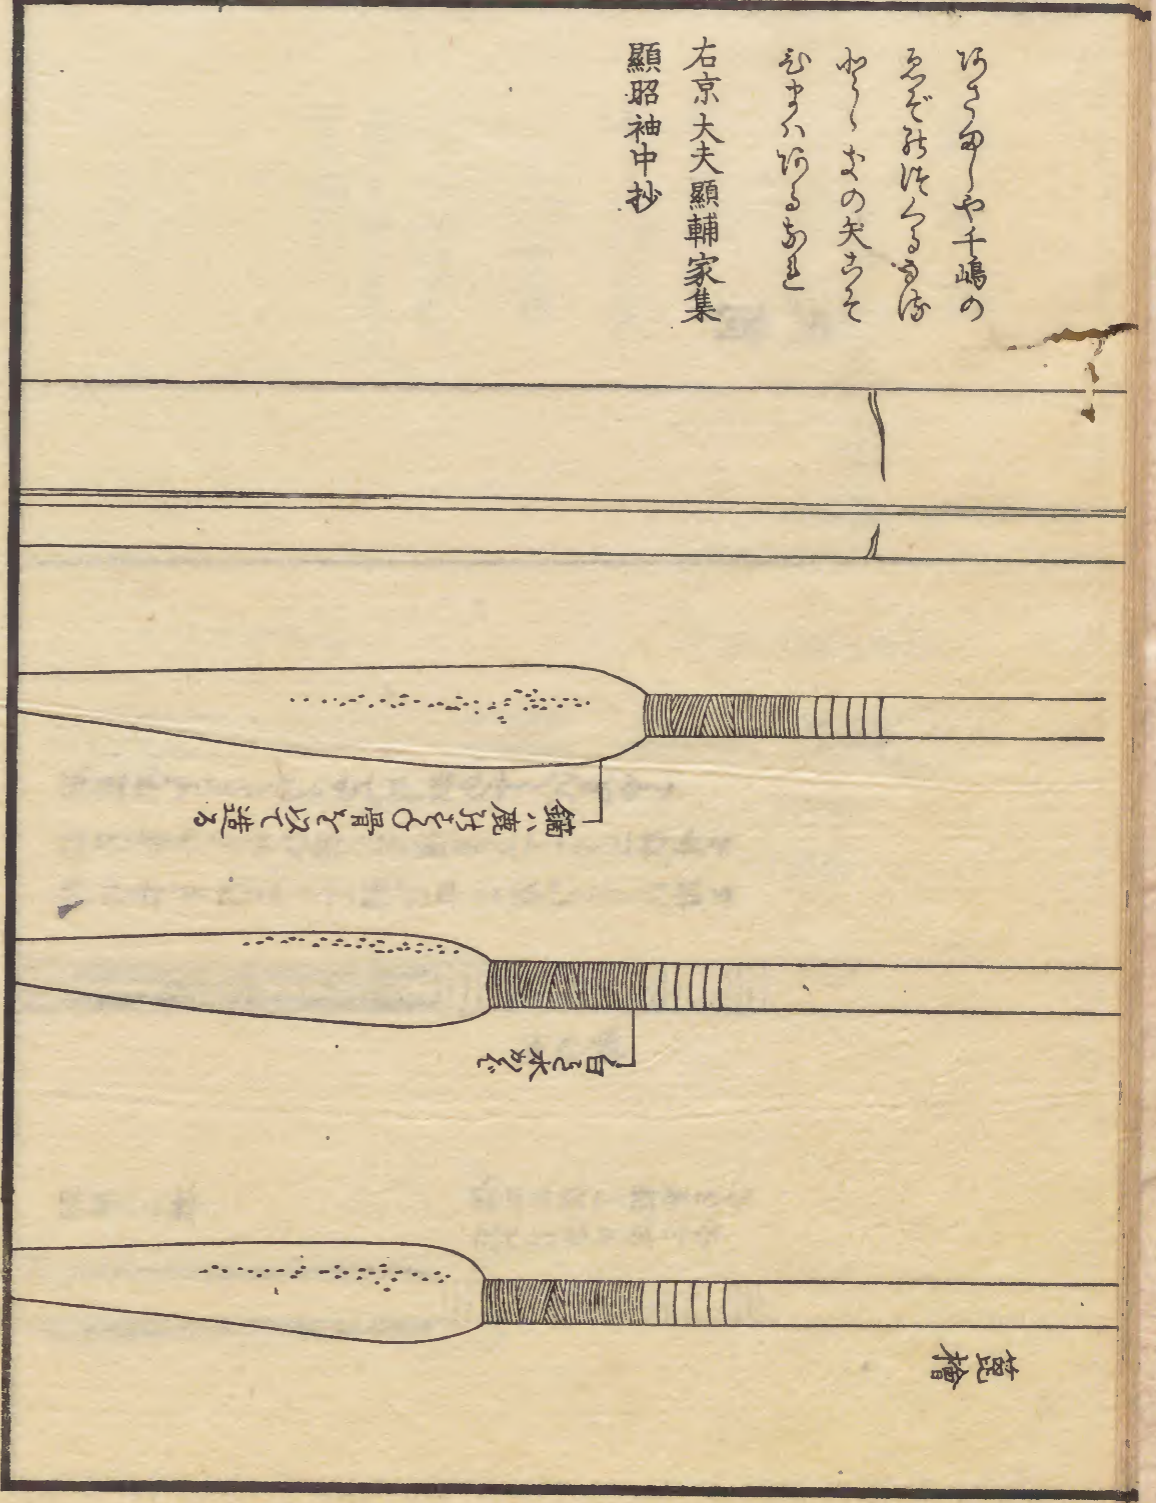 阿さましや千嶋の
ゑぞ能つくるなる
とくきの矢こそ
ひまハ阿るなれ
右京大夫顯輔家集
顯昭袖中抄
鏑ハ鹿などの骨を以て造る
箆檜